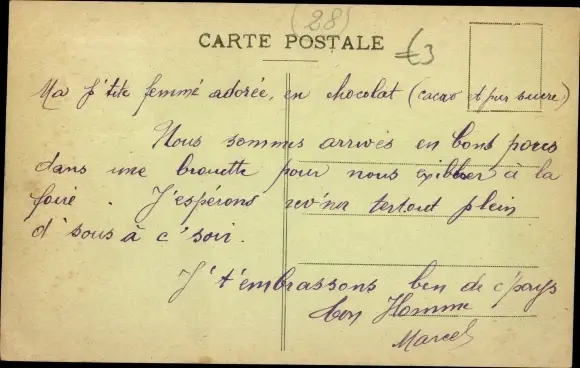 (28)
CARTE POSTALE
€3
Ma p'tite femmé adorée, en chocolat (cacao et pur sucre)
Nous sommes arrivés en bons pores
dans une brouette pour nous exibber à la
foire. J'espérons rev'nir tertout plein
d'sous à c'soir.
J't'embrassons ben de c'pays
ton Homme
Marcel